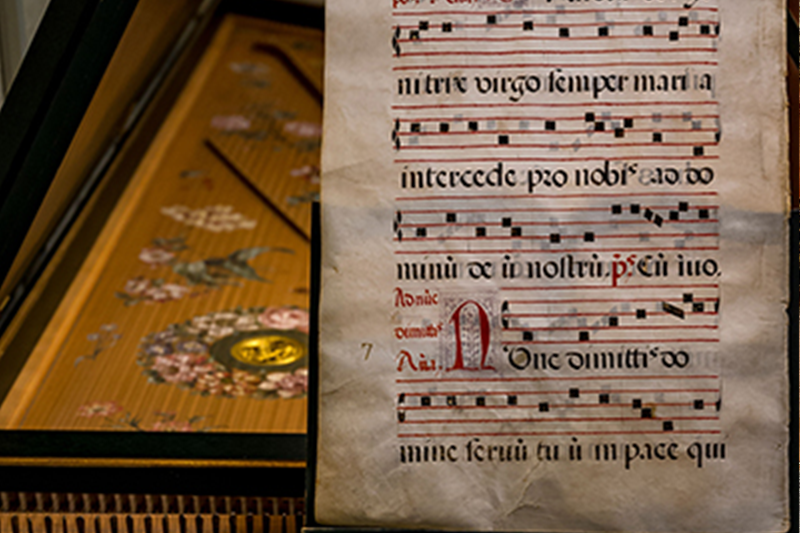 nitrix virgo semper maria
intercede pro nobis ad do
minū de ū nostrū. ps. Cū iuo.
Ad nūc
dimittis
Aña.
Nunc dimittis do
mine servū tu ū in pace qui